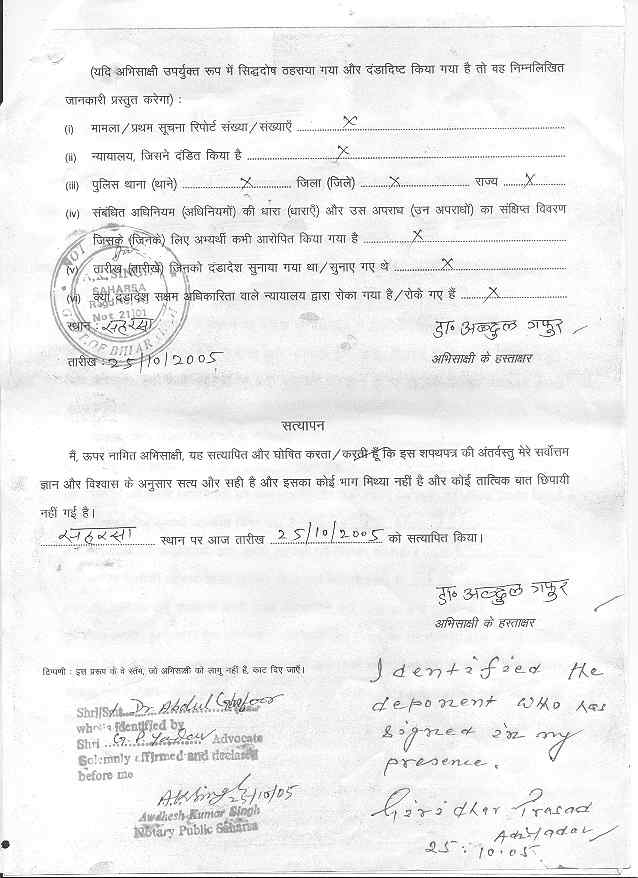 (यदि अभिसाक्षी उपर्युक्त रूप में सिद्धदोष ठहराया गया और दंडादिष्ट किया गया है तो वह निम्नलिखित
जानकारी प्रस्तुत करेगा) :
(i) मामला/प्रथम सूचना रिपोर्ट संख्या/संख्याएँ ........ X ........
(ii) न्यायालय, जिसने दंडित किया है ........ X ........
(iii) पुलिस थाना (थाने) ........ X ........ जिला (जिले) ........ X ........ राज्य ........ X ........
(iv) संबंधित अधिनियम (अधिनियमों) की धारा (धाराएँ) और उस अपराध (उन अपराधों) का संक्षिप्त विवरण
जिसके (जिनके) लिए अभ्यर्थी कभी आरोपित किया गया है ........ X ........
(v) तारीख (तारीखें) जिनको दंडादेश सुनाया गया था/सुनाए गए थे ........ X ........
(vi) क्या दंडादेश सक्षम अधिकारिता वाले न्यायालय द्वारा रोका गया है/रोके गए हैं ........ X ........
SINGH
SAHARSA
GOVT. OF BIHAR
स्थान : सहरसा
डा० अब्दुल गफुर
तारीख : 25/10/2005
अभिसाक्षी के हस्ताक्षर
सत्यापन
मैं, ऊपर नामित अभिसाक्षी, यह सत्यापित और घोषित करता/करती हूँ कि इस शपथपत्र की अंतर्वस्तु मेरे सर्वोत्तम
ज्ञान और विश्वास के अनुसार सत्य और सही है और इसका कोई भाग मिथ्या नहीं है और कोई तात्विक बात छिपायी
नहीं गई है।
सहरसा ........ स्थान पर आज तारीख 25/10/2005 को सत्यापित किया।
डा० अब्दुल गफुर
अभिसाक्षी के हस्ताक्षर
टिप्पणी : इस प्ररूप के वे स्तंभ, जो अभिसाक्षी को लागू नहीं है, काट दिए जाएँ।
Identified the
deponent who has
signed in my
presence.
Giridhar Prasad
Adv
25.10.05
Shri/Smt. Dr Abdul Ghafoor
who is identified by
Shri G. P. Yadav Advocate
Solemnly affirmed and declared
before me
A.K.Singh 25/10/05
Awdhesh Kumar Singh
Notary Public Saharsa